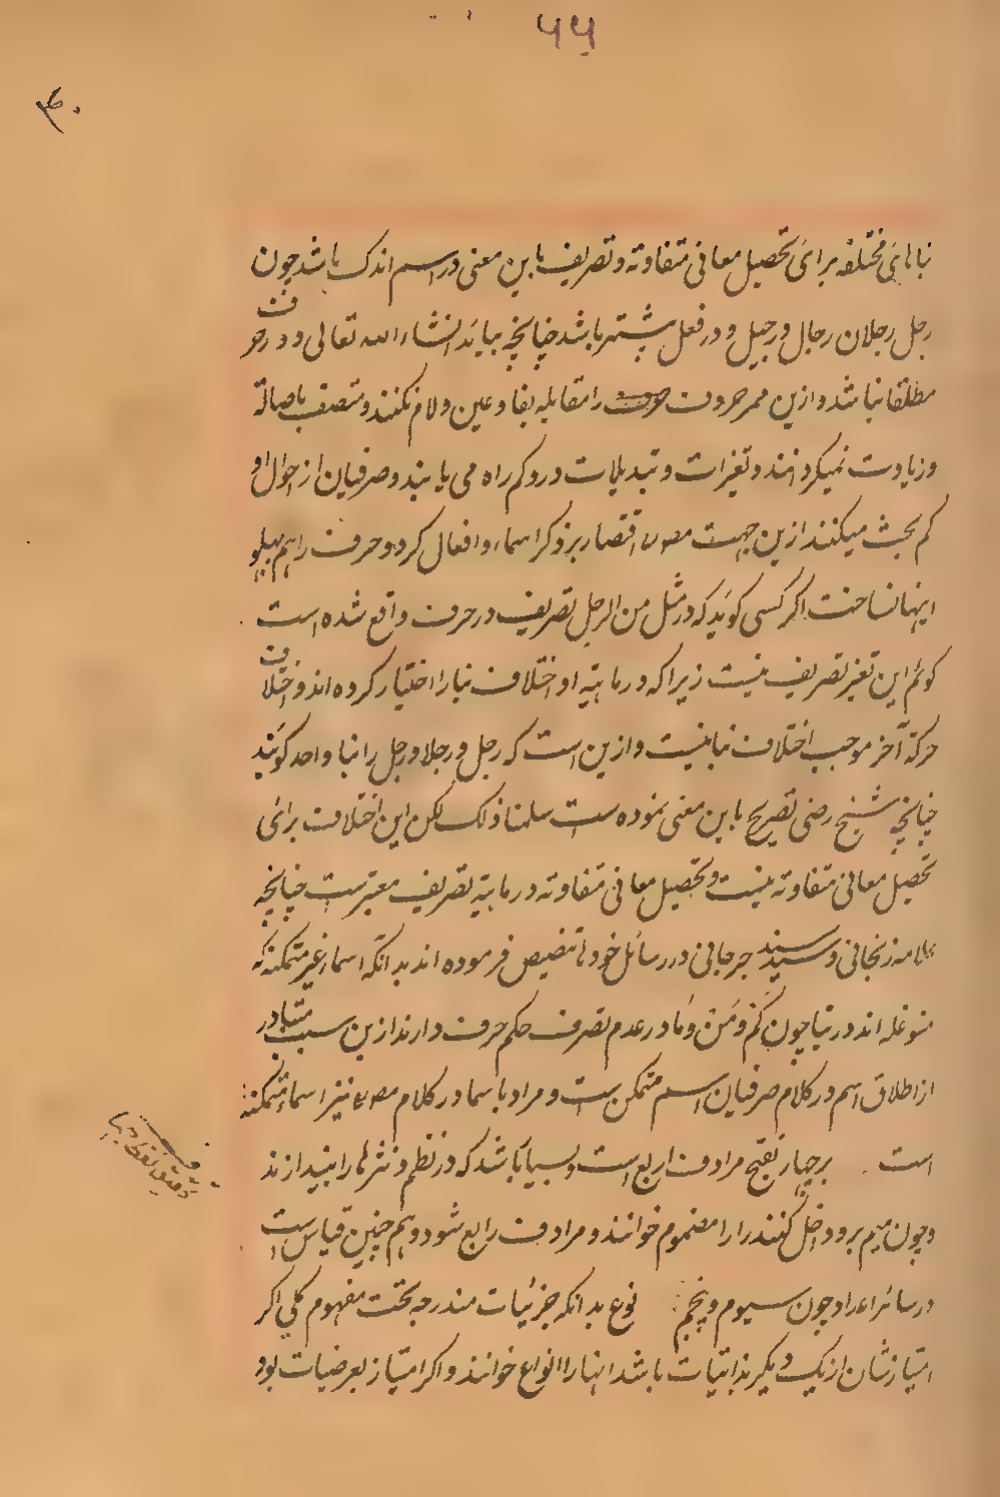 ۵۵
۴۰
بناهای مختلفه برای تحصیل معانی متفاوته و تصریف باین معنی در اسم اندک باشد چون
رجل رجلان رجال و رجیل و در فعل بیشتر باشد چنانچه بیاید انشاء الله تعالی و در حرف
مطلقا نباشد و ازین ممر حروف را مقابله بفا و عین و لام نکنند و متصف باصالة
و زیادت نمیگردانند و تغیرات و تبدیلات درو کم راه می یابند و صرفیان از احوال او
کم بحث میکنند ازین جهت مصـ اقتصار بر ذکر اسماء و افعال کرد و حرف را هم پهلو
اینها نساخت اکر کسی کوید که در مثل من الرجل تصریف در حرف واقع شده است
کوئم این تغیر تصریف نیست زیرا که در ماهیة او اختلاف بنا را اختیار کرده اند و اختلاف
حرکة آخر موجب اختلاف بنا نیست و ازین است که رجل و رجلا و رجل را بنا واحد کویند
چنانچه شیخ رضی تصریح باین معنی نموده ست سلمنا ذلک لکن این اختلاف برای
تحصیل معانی متفاوته نیست و تحصیل معانی متفاوته در ماهیة تصریف معتبرست چنانچه
علامه زنجانی و سید سند جرجانی در رسائل خود تنصیص فرموده اند بدانکه اسماء غیر متمکنه که
متوغله اند در بنا چون کم و من و ما در عدم تصرف حکم حرف دارند ازین سبب متبادر
از اطلاق اسم در کلام صرفیان اسم متمکن ست و مراد باسما در کلام مصـ نیز اسماء متمکنه
است . برچهار بفتح مرادف اربع است و بسیار باشد که در نظم و نثر ها را بیندازند
و چون میم برو داخل کنند را را مضموم خوانند و مرادف رابع شود و هم چنین قیاس ست
در سائر اعداد چون سیوم و پنجم : نوع بدانکه جزئیات مندرجه تحت مفهوم کلی اکر
امتیاز شان از یک دیکر بذاتیات باشد انها را انواع خوانند و اکر امتیاز بعرضیات بود